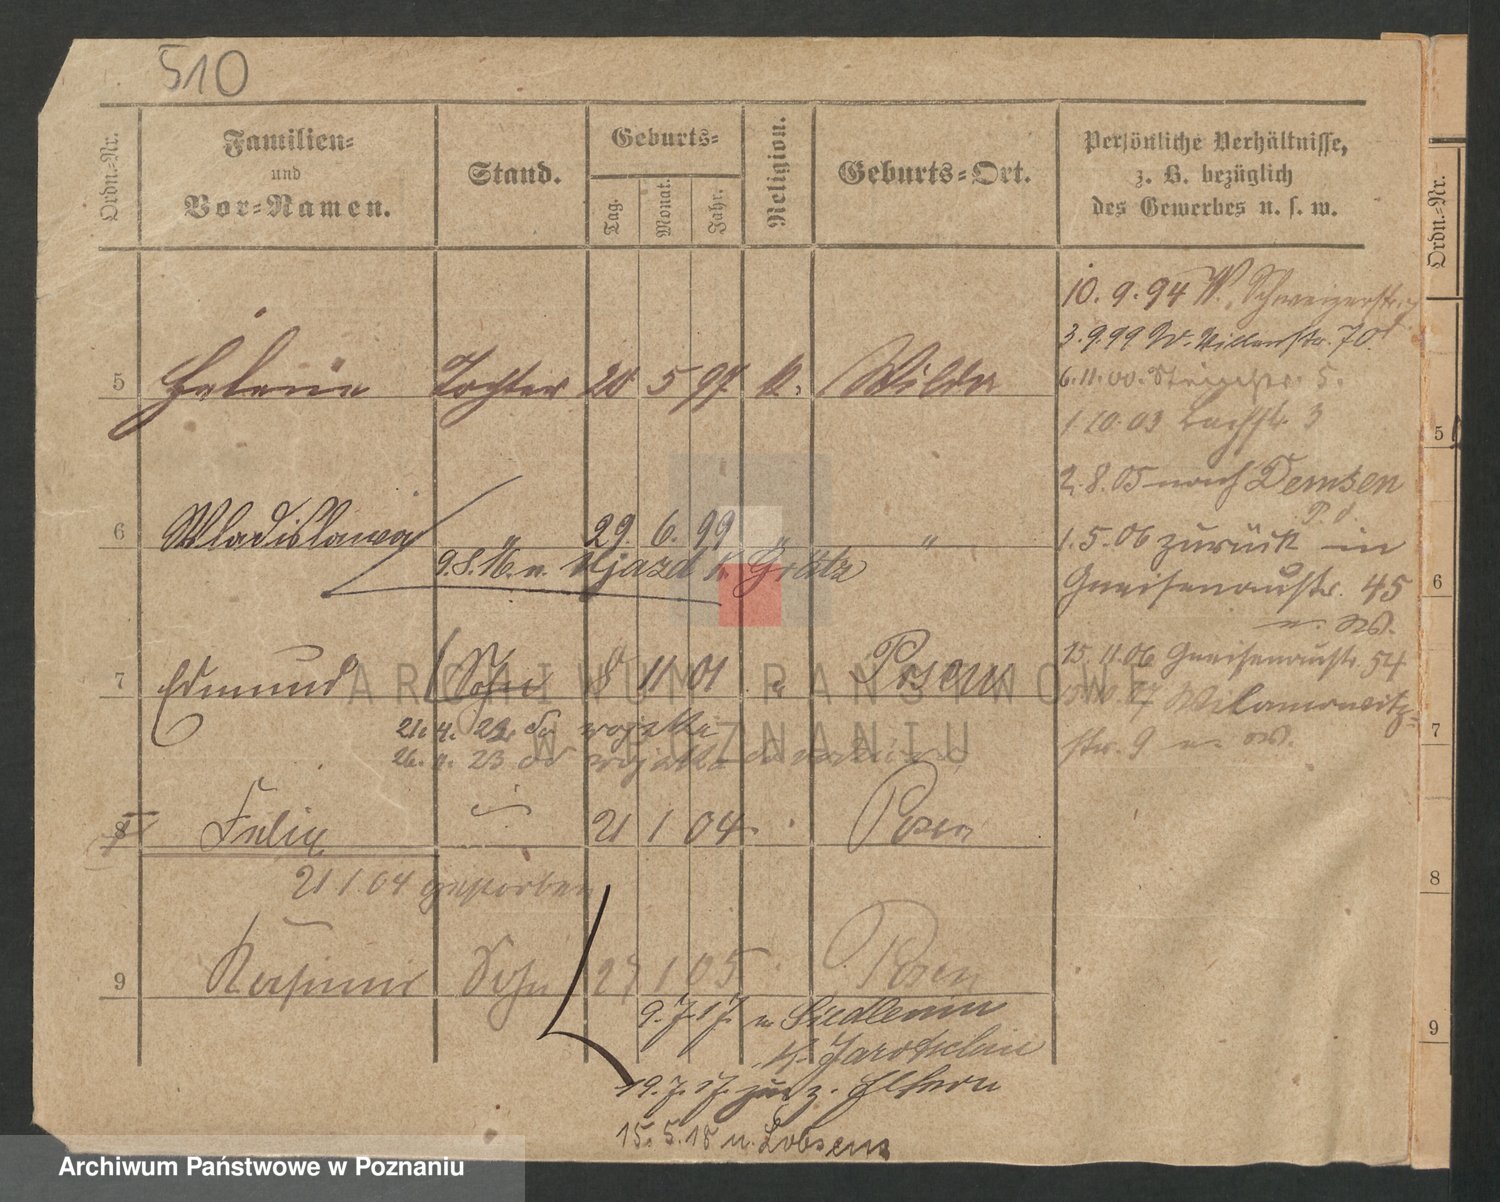 510
Ordn.-Nr.
Familien-
und
Vor-Namen.
Stand.
Geburts-
Tag.
Monat.
Jahr.
Religion.
Geburts-Ort.
Persönliche Verhältnisse,
z. B. bezüglich
des Gewerbes u. s. w.
10. 9. 94 W. Schweizerstr.
3. 9. 99 W. 70.
5 Helene Tochter 20 5 97 k. Wilda
6. 11. 00. 5.
1 10 03 Bachstr. 3
2. 8. 05 nach Demsen
P. O.
6 Wladislawa " 29. 6. 99 " "
9. 8. 16. n. Ujazd K. Grätz
1. 5. 06 zurück in
Gneisenaustr. 45
n. W.
7 Edmund Sohn 8 11 01 " Posen
15 11. 06 Gneisenaustr. 54
Wilamowitz-
str. 9 n. W.
21. 4. 22 do wojska
26. 23 do wojska
8 Felix 21 1 04 Posen
21 1. 04 gestorben
9 Kasimir Sohn 27 1 05 Posen
9. 7. 17. n Siedlemin
K. Jarotschin
19. 7. 17. zur z. Eltern
15. 5. 18 n. Lobsens
Ordn.-Nr.
5
6
7
8
9
ARCHIWUM PAŃSTWOWE
W POZNANIU
Archiwum Państwowe w Poznaniu